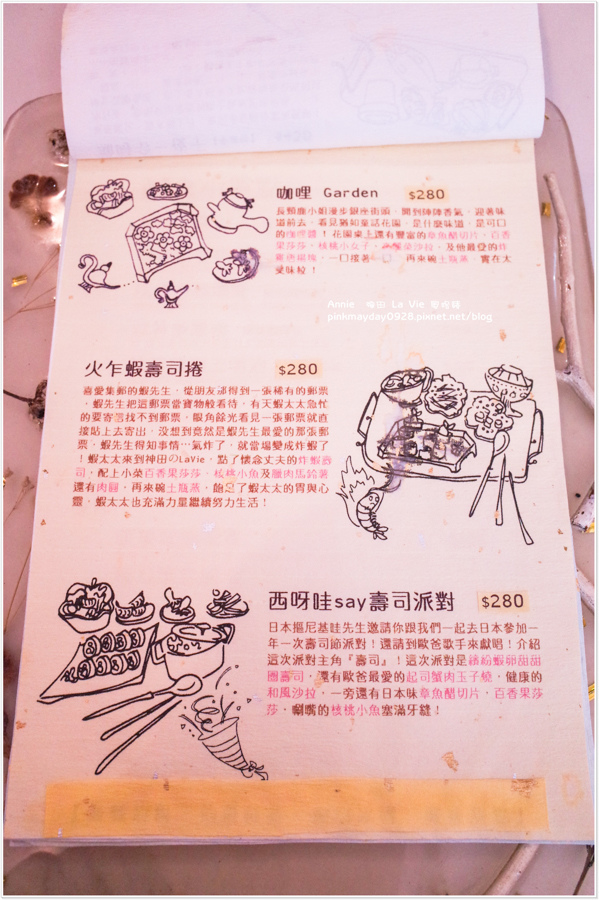 咖哩 Garden $280
長頸鹿小姐漫步銀座街頭，聞到陣陣香氣，迎著味
道前去，看見猶如童話花園，是什麼味道，是可口
的咖哩醬！花園桌上還有豐富的章魚醋切片、百香
果莎莎、核桃小女子、沙拉，及他最愛的炸
一口接著一口，再來碗土瓶蒸，實在太
美味啦！
Annie 神田 La Vie
pinkmayday0928.pixnet.net/blog
火乍蝦壽司捲 $280
喜愛集郵的蝦先生，從朋友那得到一張稀有的郵票
，蝦先生把這郵票當寶物般看待，有天蝦太太急忙
的要寄信找不到郵票，眼角餘光看見一張郵票就直
接貼上去寄出，沒想到竟然是蝦先生最愛的那張郵
票，蝦先生得知事情…氣炸了，就當場變成炸蝦了
！蝦太太來到神田のLaVie，點了懷念丈夫的炸蝦壽
司，配上小菜百香果莎莎、核桃小魚及臘肉馬鈴薯
還有肉圓，再來碗土瓶蒸，飽足了蝦太太的胃與心
靈，蝦太太也充滿力量繼續努力生活！
西呀哇say壽司派對 $280
日本摳尼基哇先生邀請你跟我們一起去日本參加一
年一次壽司節派對！還請到歐爸歌手來獻唱！介紹
這次派對主角『壽司』！這次派對是繽紛蝦卵甜甜
圈壽司，還有歐爸最愛的起司蟹肉玉子燒，健康的
和風沙拉，一旁還有日本味章魚醋切片，百香果莎
莎，唰嘴的核桃小魚塞滿牙縫！